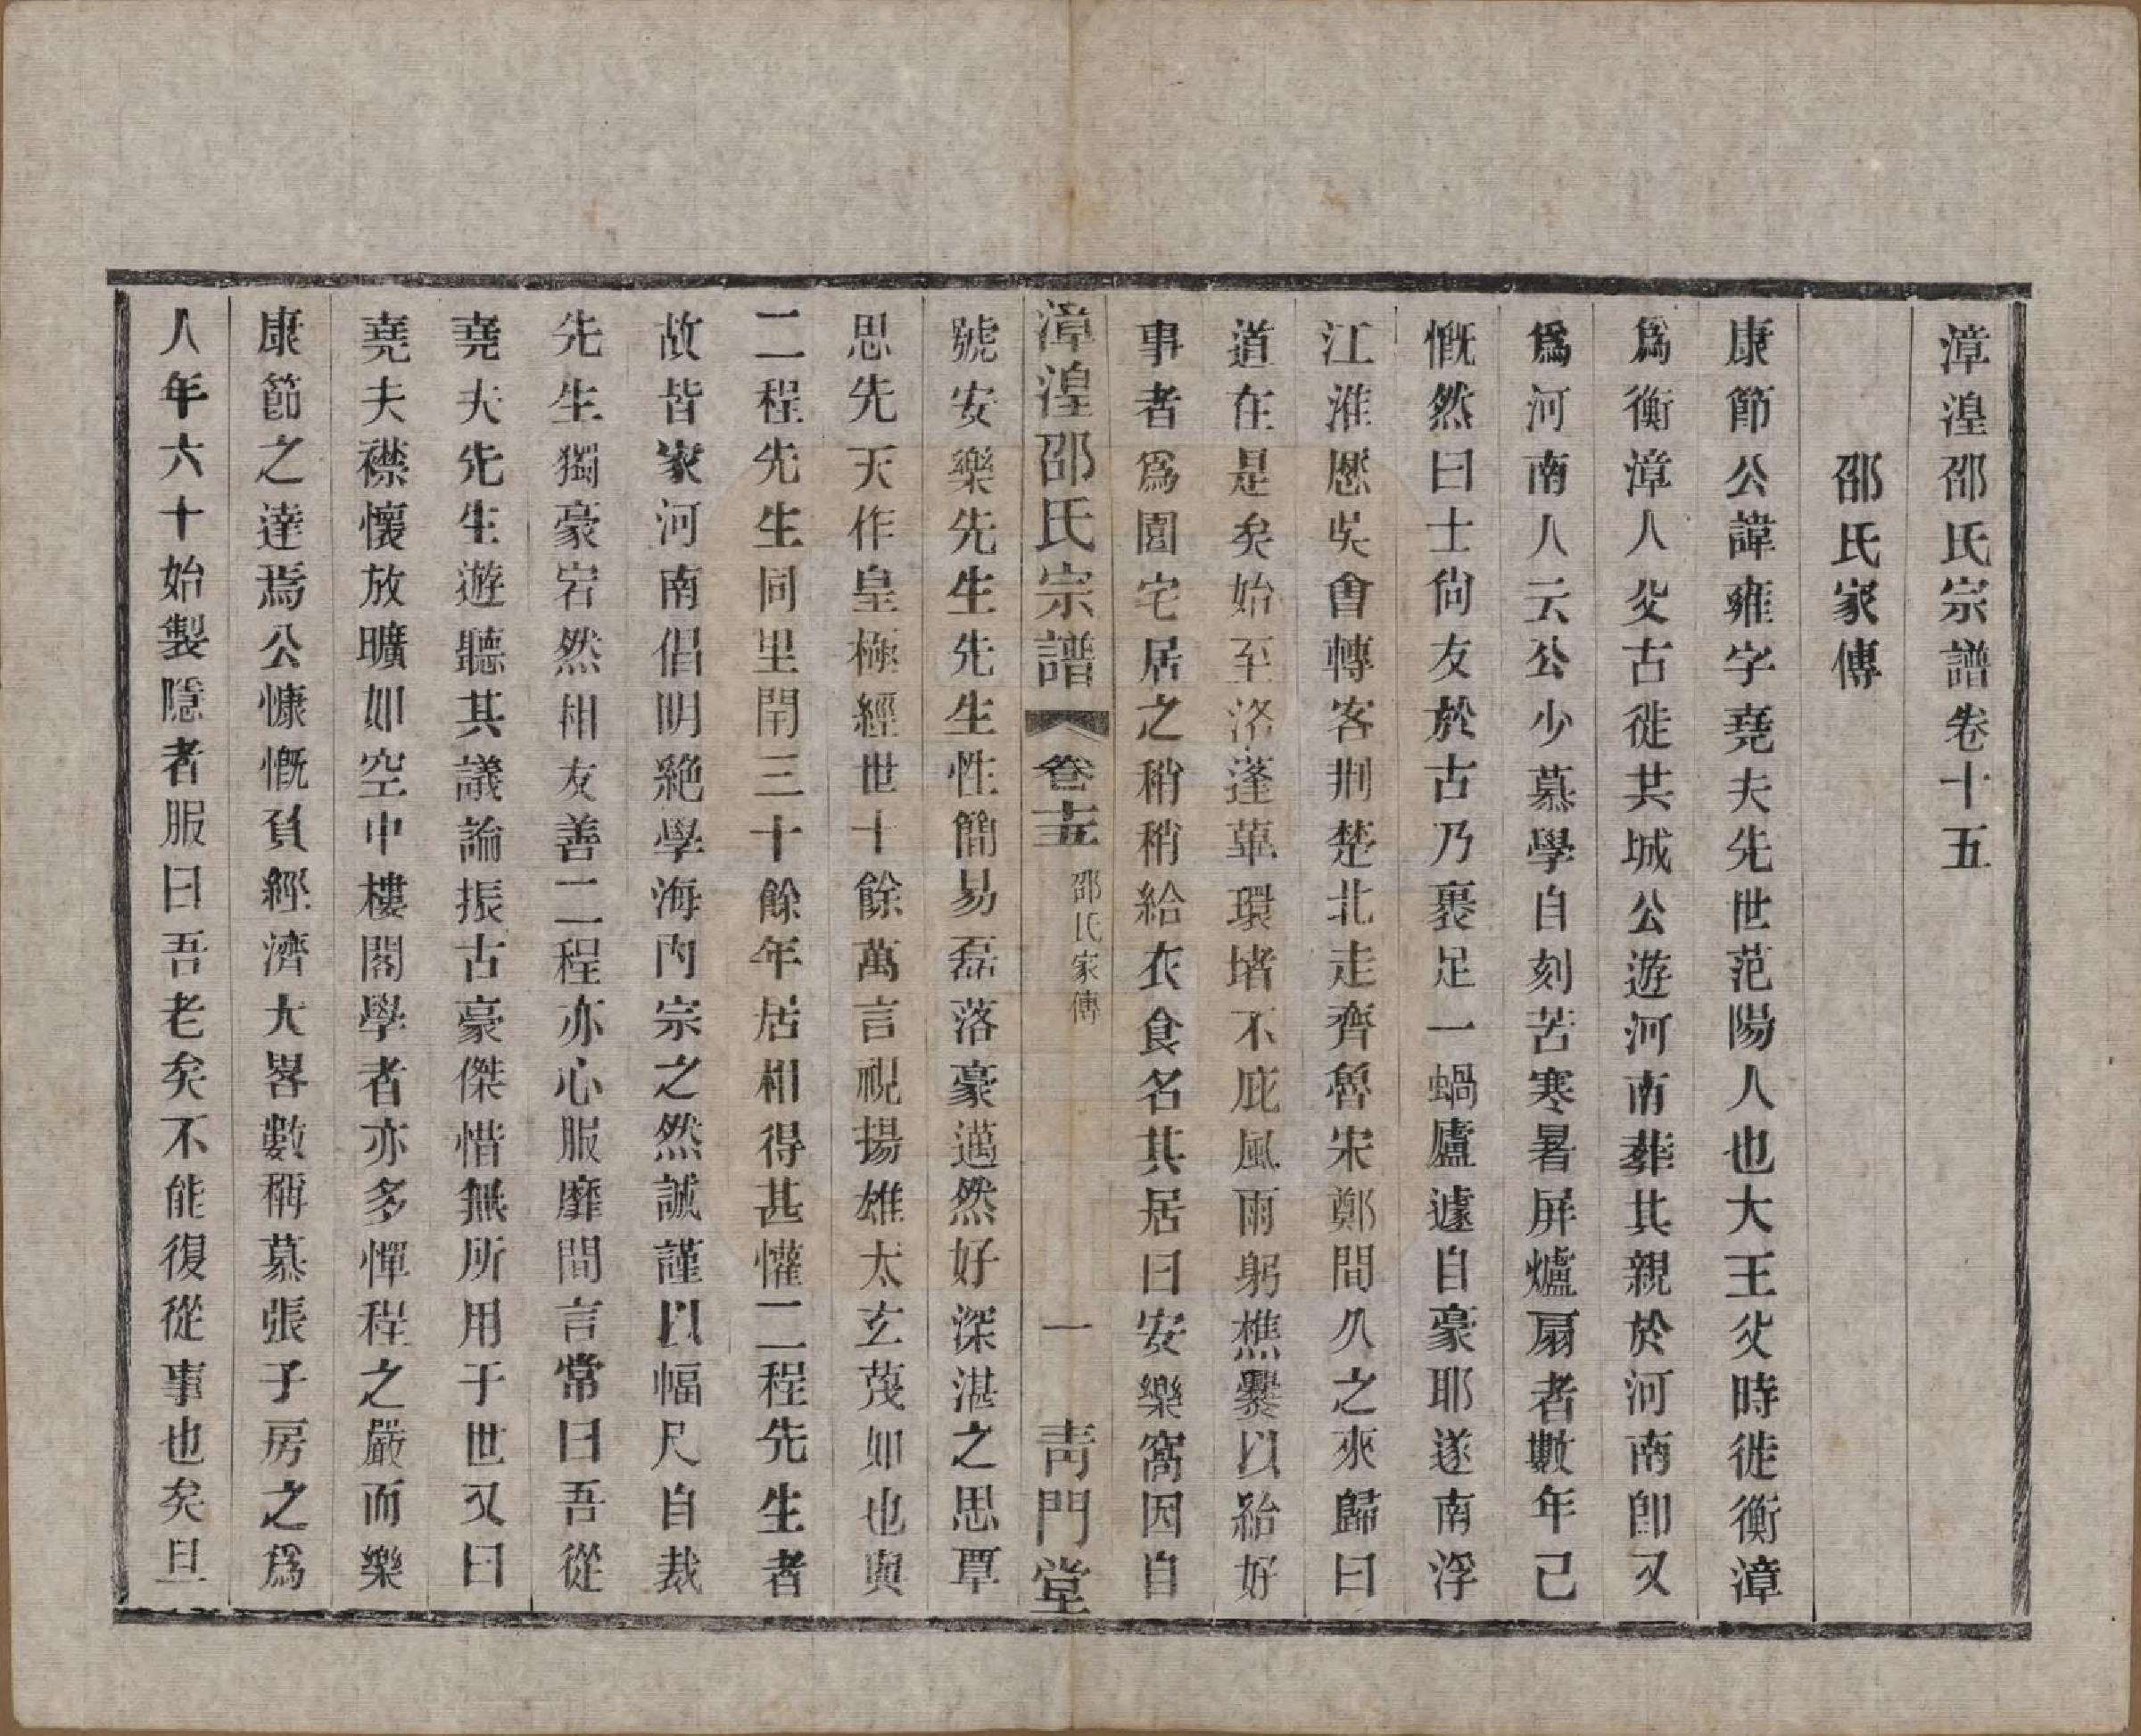 漳湟邵氏宗譜卷十五
邵氏家傳
康節公諱雍字堯夫先世范陽人也大王父時徙衡漳
爲衡漳人父古徙共城公遊河南葬其親於河南卽又
爲河南人云公少慕學自刻苦寒暑屏爐扇者數年己
慨然曰士尙友於古乃裹足一蝸廬遽自豪耶遂南浮
江淮歷吳會轉客荆楚北走齊魯宋鄭間久之來歸曰
道在是矣始至洛蓬蓽環堵不庇風雨躬樵爨以給好
事者爲園宅居之稍稍給衣食名其居曰安樂窩因自
漳湟邵氏宗譜 卷十五 邵氏家傳 一 靑門堂
號安樂先生先生性簡易磊落豪邁然好深湛之思覃
思先天作皇極經世十餘萬言視揚雄太玄蔑如也與
二程先生同里閈三十餘年居相得甚懽二程先生者
故皆家河南倡明絕學海內宗之然誠謹以幅尺自裁
先生獨豪宕然相友善二程亦心服靡間言常曰吾從
堯夫先生遊聽其議論振古豪傑惜無所用于世又曰
堯夫襟懷放曠如空中樓閣學者亦多憚程之嚴而樂
康節之達焉公慷慨負經濟大畧數稱慕張子房之爲
人年六十始製隱者服曰吾老矣不能復從事也矣旦